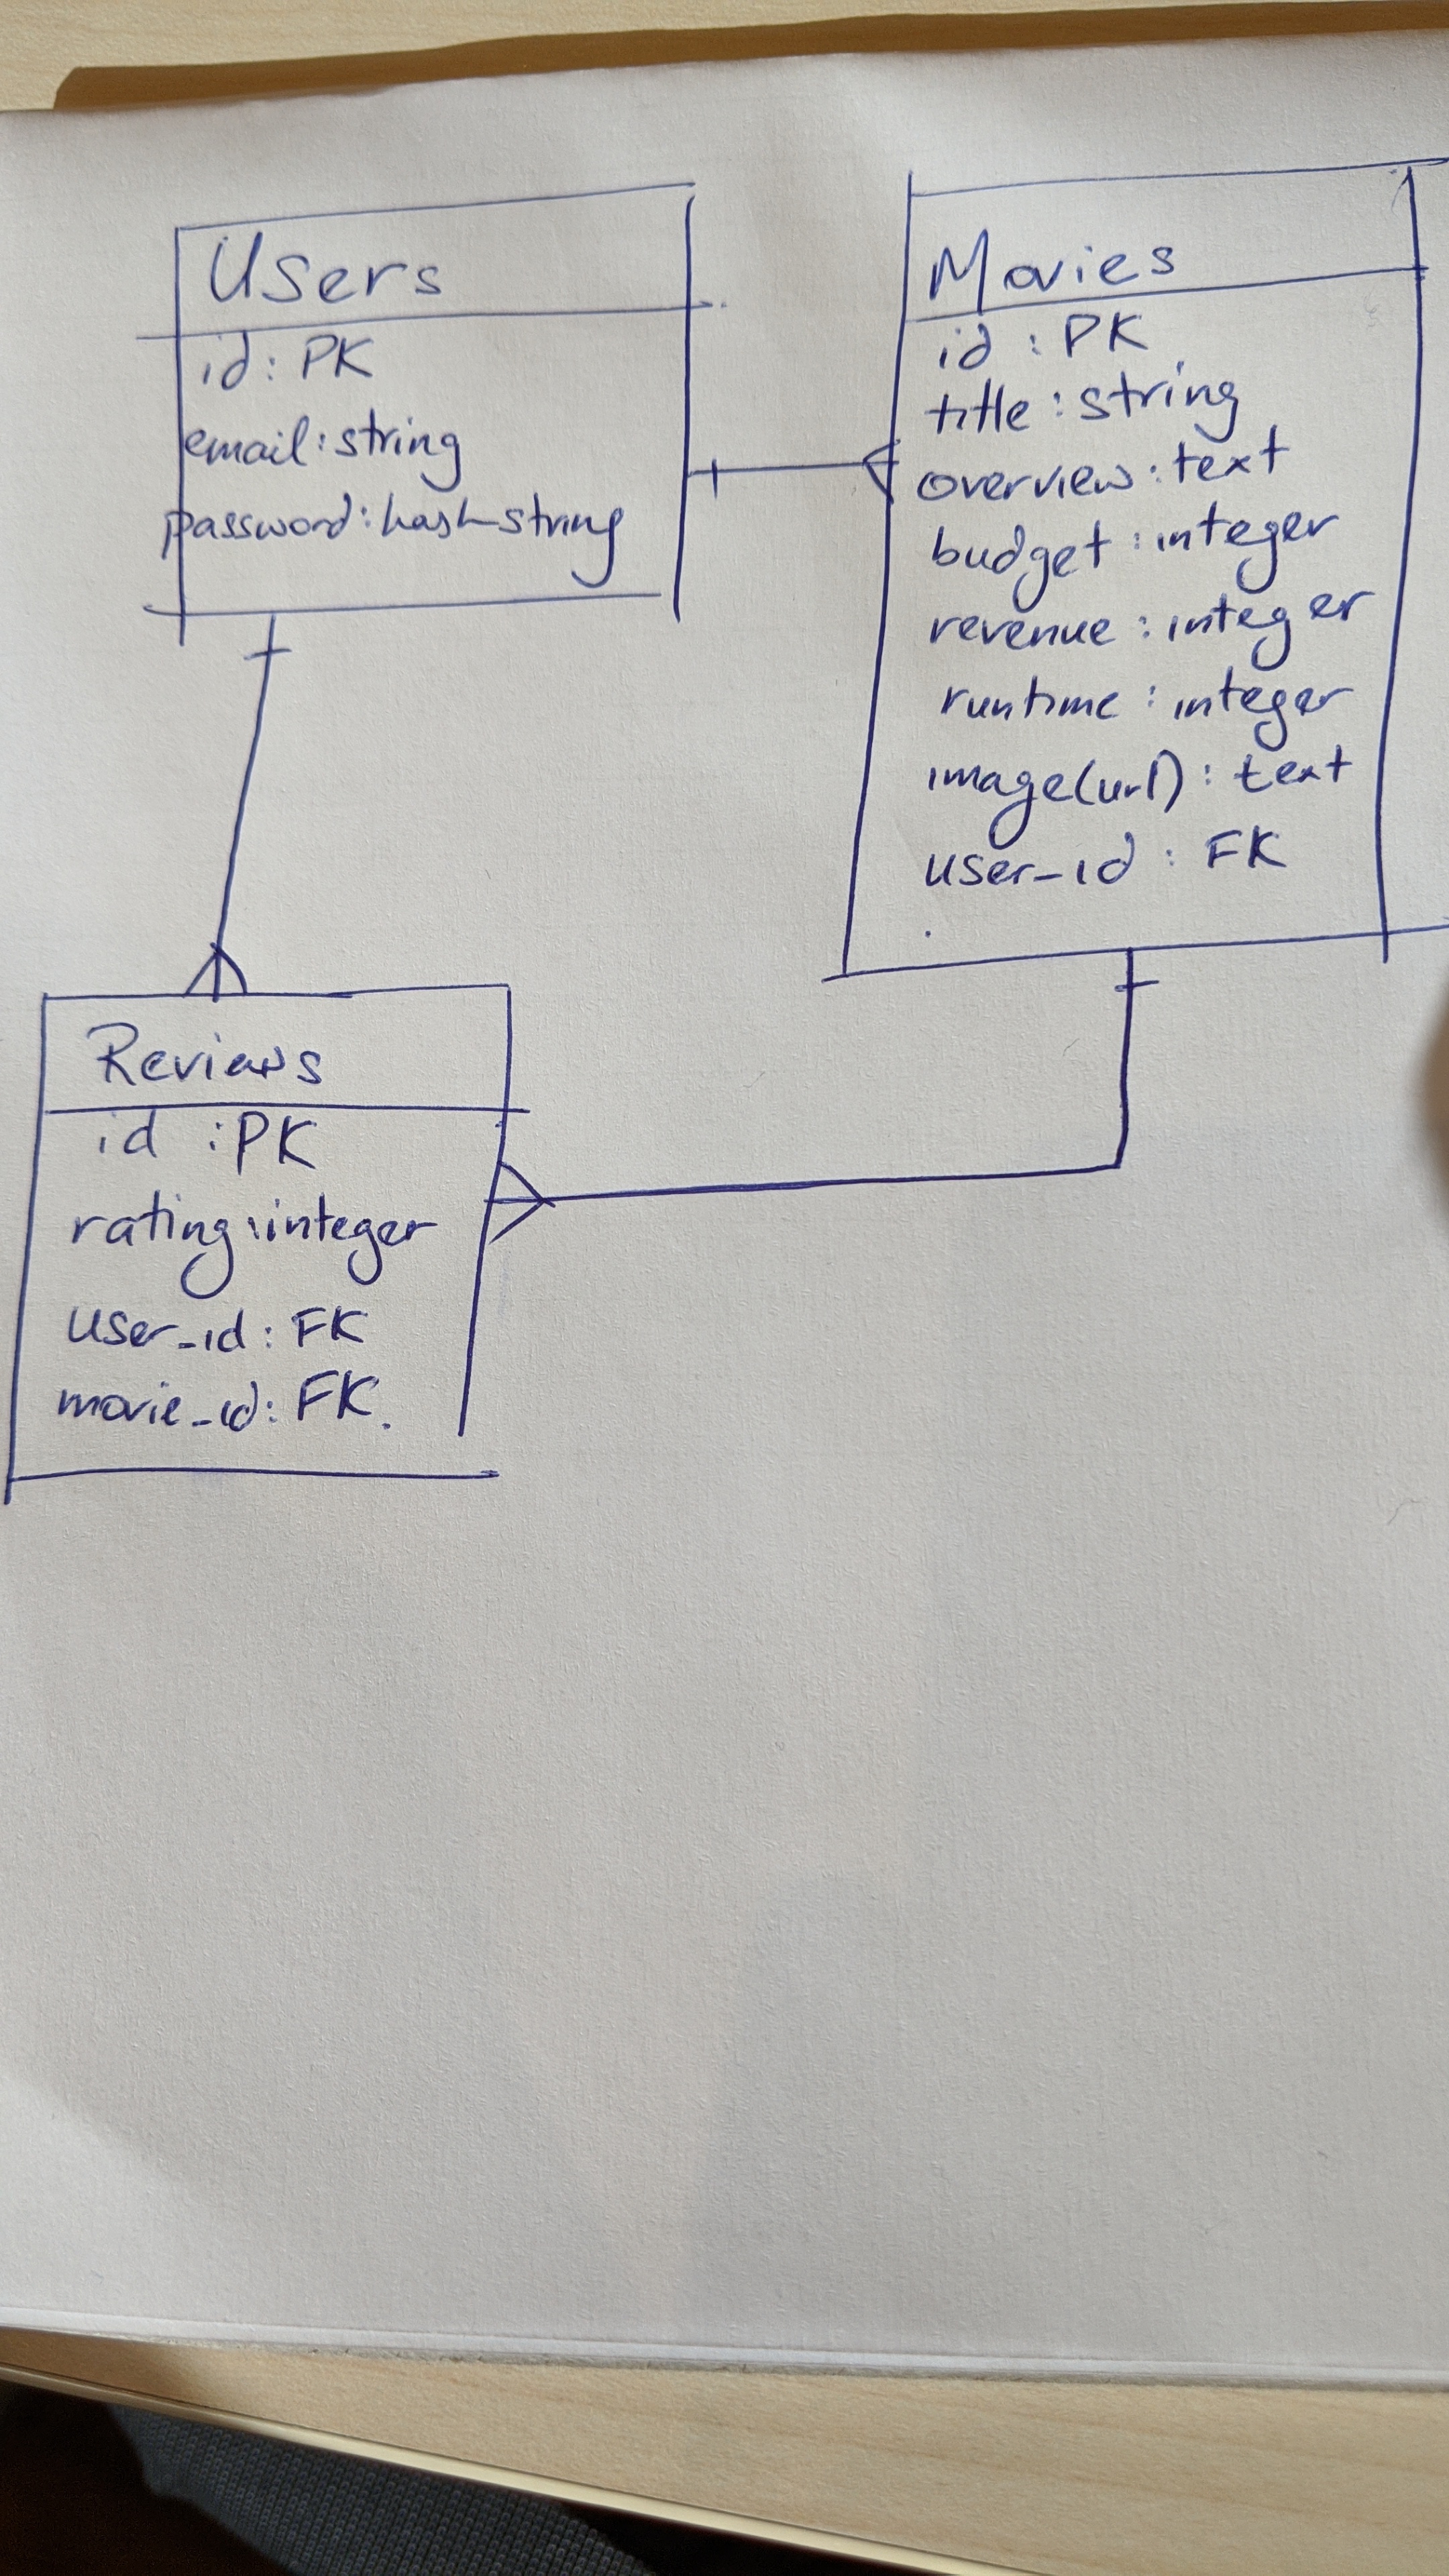 Users
id: PK
email: string
password: hash-string
Movies
id : PK
title : string
overview : text
budget : integer
revenue : integer
runtime : integer
image(url) : text
user_id : FK
Reviews
id : PK
rating : integer
user_id : FK
movie_id : FK.